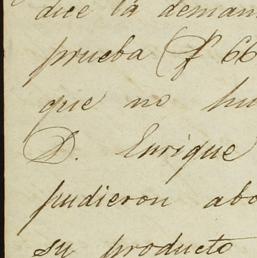 dice la deman
prueba (f 66
que no hu
D. Enrique
pudieron abo
su producto